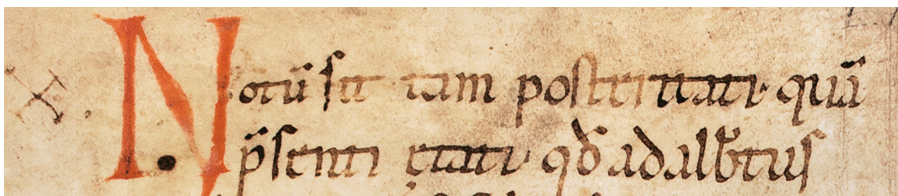 Notū sit tam posteritati quā
p̄senti etati qđ adalb̄tus